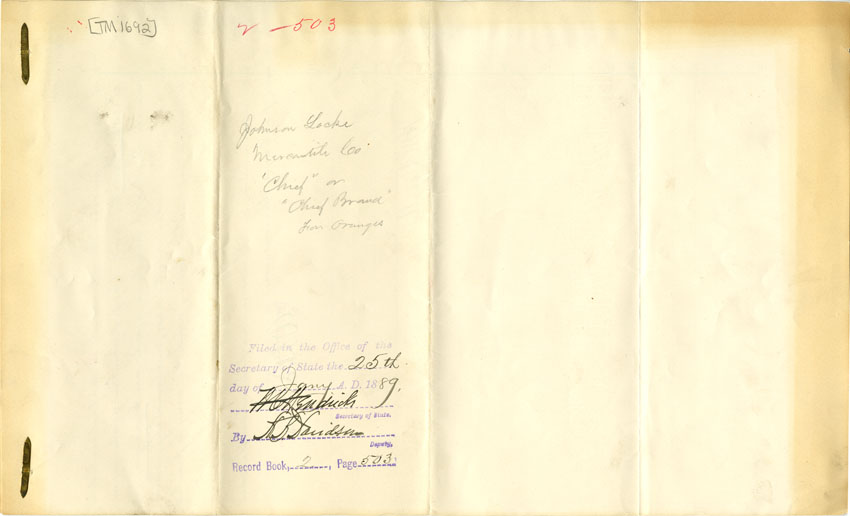 [TM1692]
2 - 503
Johnson Locke
Mercantile Co.
"Chief" or
"Chief Brand"
For Oranges
Filed in the Office of the
Secretary of State the 25th
day of Jany A. D. 1889.
W C Hendricks
Secretary of State.
By L B Davidson
Deputy.
Record Book, 2, Page 503.